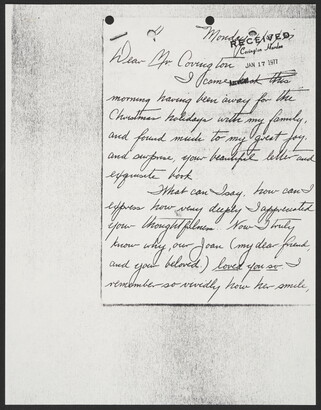 Monday
RECEIVED
Covington Harlan
JAN 17 1977
Dear Mr Covington
I came back this
morning having been away for the
Christmas holidays with my family,
and found much to my great joy
and surprise, your beautiful letter and
exquisite book
What can I say, how can I
express how very deeply I appreciated
your thoughtfulness Now I truly
know why, our Joan (my dear friend,
and your beloved.) loved you so I
remember so vividly how her smile,